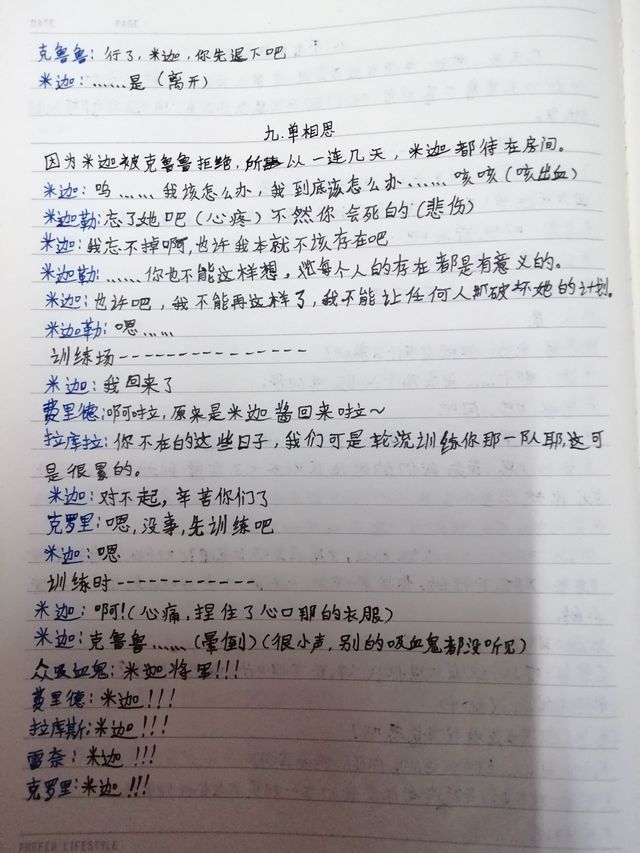 克鲁鲁：行了，米迦，你先退下吧
米迦：……是（离开）
九.单相思
因为米迦被克鲁鲁拒绝，所以一连几天，米迦都待在房间。
米迦：呜……我该怎么办，我到底该怎么办……咳咳（咳出血）
米迦勒：忘了她吧（心疼）不然你会死的（悲伤）
米迦：我忘不掉啊，也许我本就不该存在吧
米迦勒：……你也不能这样想，每个人的存在都是有意义的。
米迦：也许吧，我不能再这样了，我不能让任何人破坏她的计划。
米迦勒：嗯……
训练场--------------
米迦：我回来了
费里德：啊啦，原来是米迦酱回来啦～
拉库拉：你不在的这些日子，我们可是轮流训练你那一队耶，这可
是很累的。
米迦：对不起，辛苦你们了
克罗里：嗯，没事，先训练吧
米迦：嗯
训练时------------
米迦：啊！（心痛，捏住了心口那的衣服）
米迦：克鲁鲁……（晕倒）（很小声，别的吸血鬼都没听见）
众吸血鬼：米迦将军!!!
费里德：米迦!!!
拉库斯：米迦!!!
雷奈：米迦!!!
克罗里：米迦!!!
PREFER LIFESTYLE